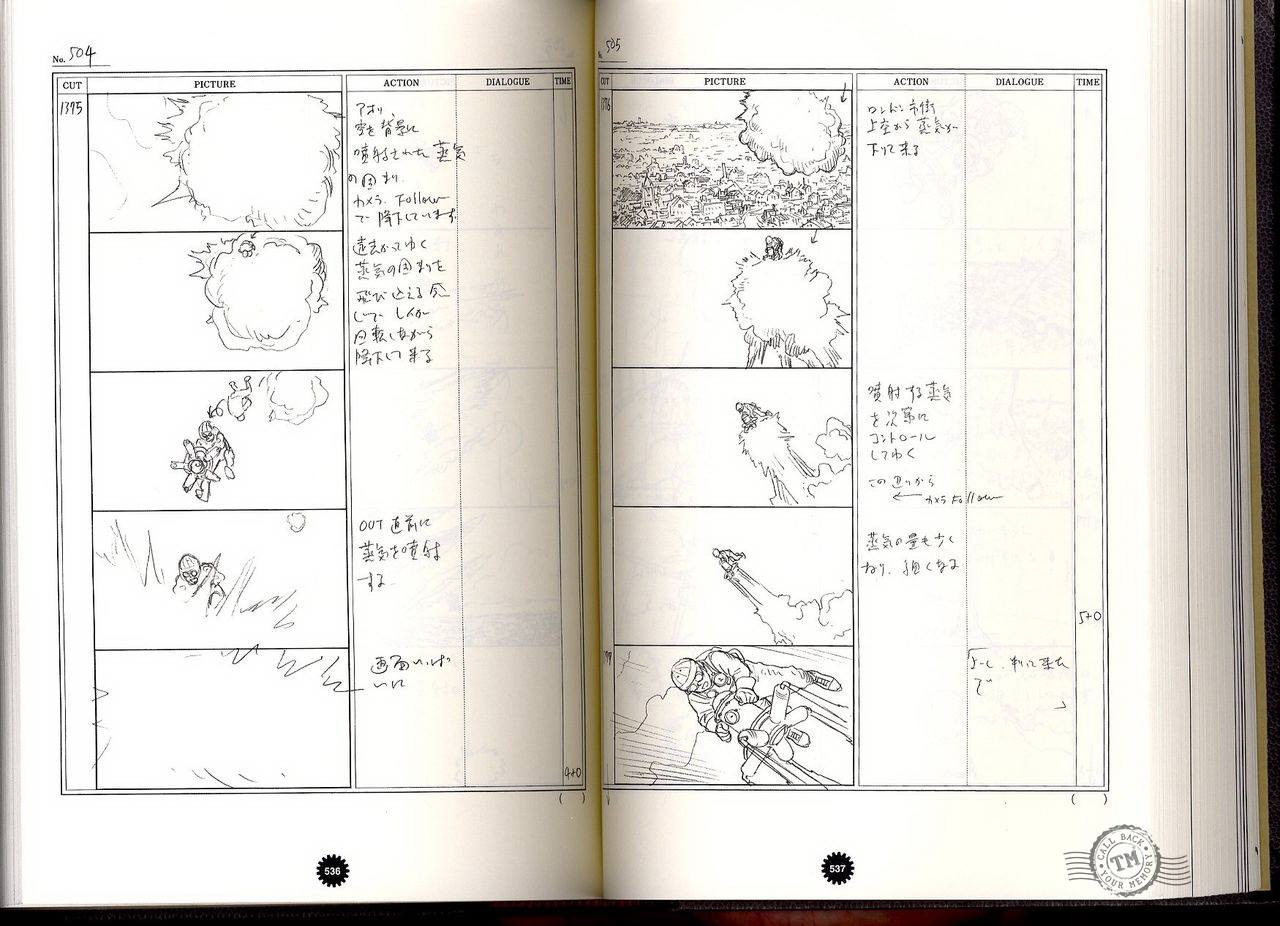 No. 504
CUT PICTURE ACTION DIALOGUE TIME
1375
アオリ
空を背景に
噴射された蒸気
の固まり
カメラ Follow
で降下しています
遠去かってゆく
蒸気の固まりを
飛び込える感
じで
回転しながら
降下して来る
OUT 直前に
蒸気を噴射
する
画面いっぱ
いに
4+0
( )
536
505
CUT PICTURE ACTION DIALOGUE TIME
1376
ロンドン市街
上空から蒸気が
下りて来る
噴射する蒸気
を次第に
コントロール
してゆく
この辺りから
カメラ Follow
蒸気の量も少く
なり、細くなる
5+0
( )
537
CALL BACK
TM
YOUR MEMORY